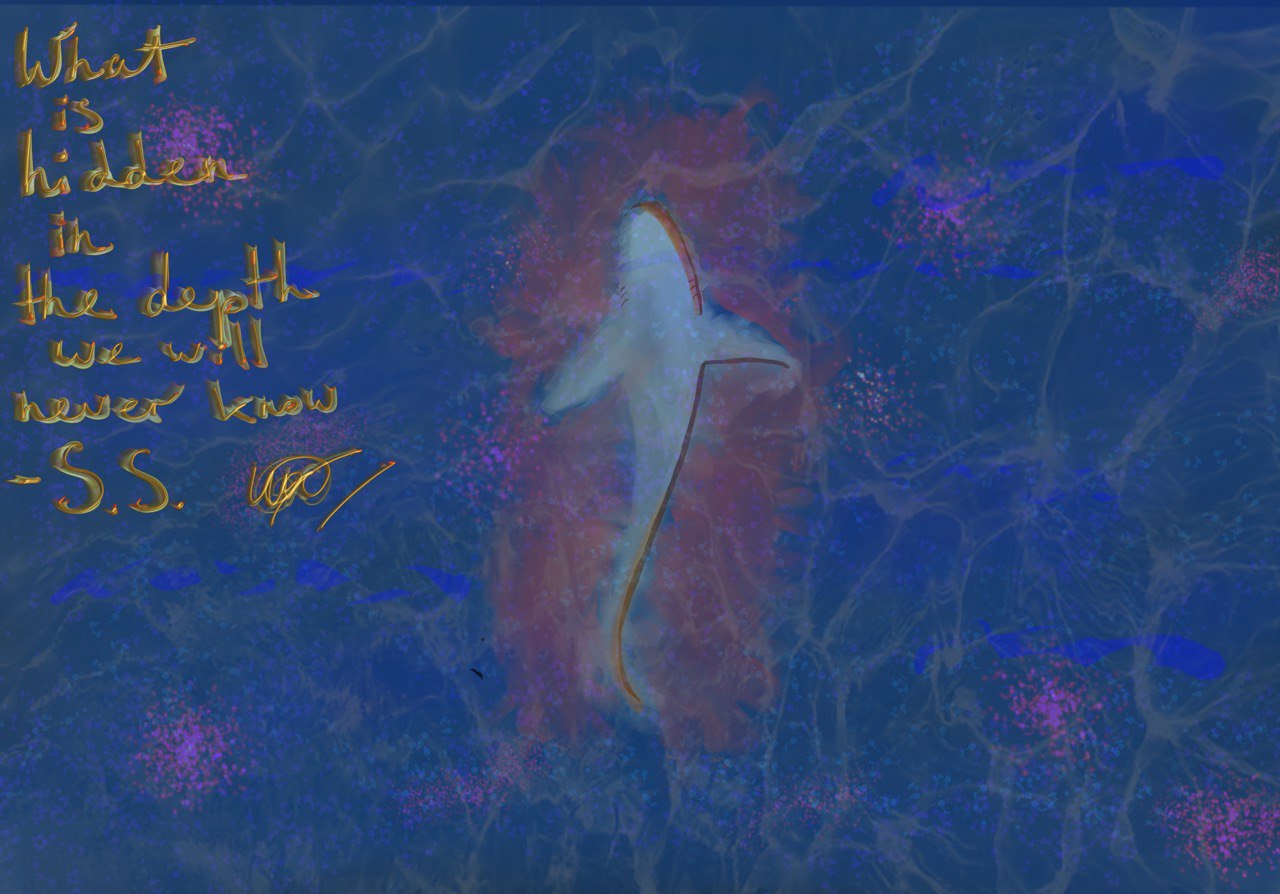 What
is
hidden
in
the depth
we will
never know
- S.S.